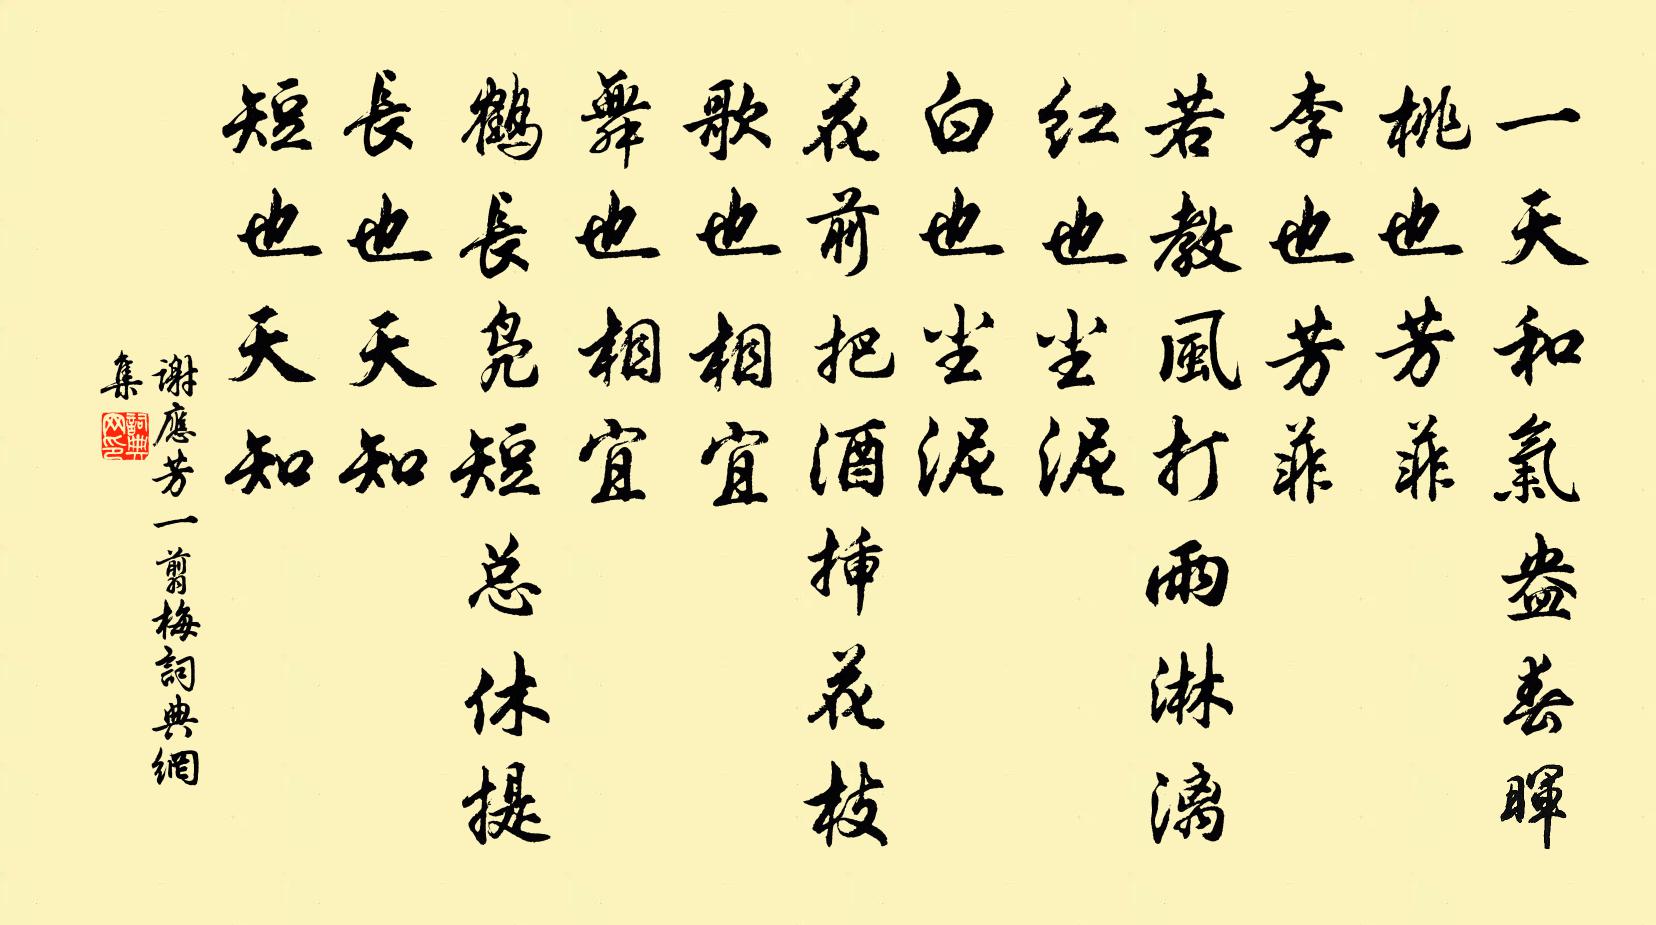 一天和氣盎春暉
桃也芳菲
李也芳菲
若教風打雨淋漓
红也尘泥
白也尘泥
花前把酒插花枝
歌也相宜
舞也相宜
鶴長凫短总休提
長也天知
短也天知
謝應芳一剪梅詞典網
集
詞典
网印